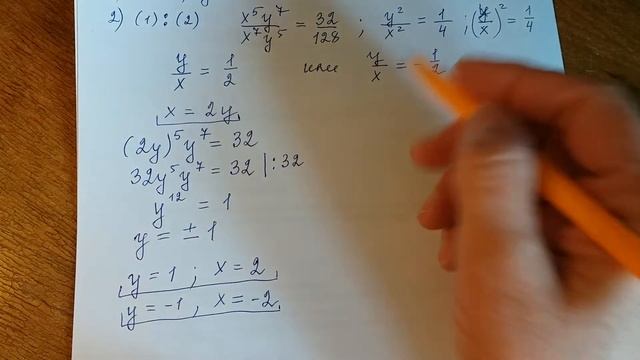 2) (1) : (2) x⁵y⁷/x⁷y⁵ = 32/128 ; y²/x² = 1/4 ; (y/x)² = 1/4
y/x = 1/2 или y/x = -1/2
x = 2y
(2y)⁵y⁷ = 32
32y⁵y⁷ = 32 | : 32
y¹² = 1
y = ± 1
y = 1 ; x = 2
y = -1 , x = -2